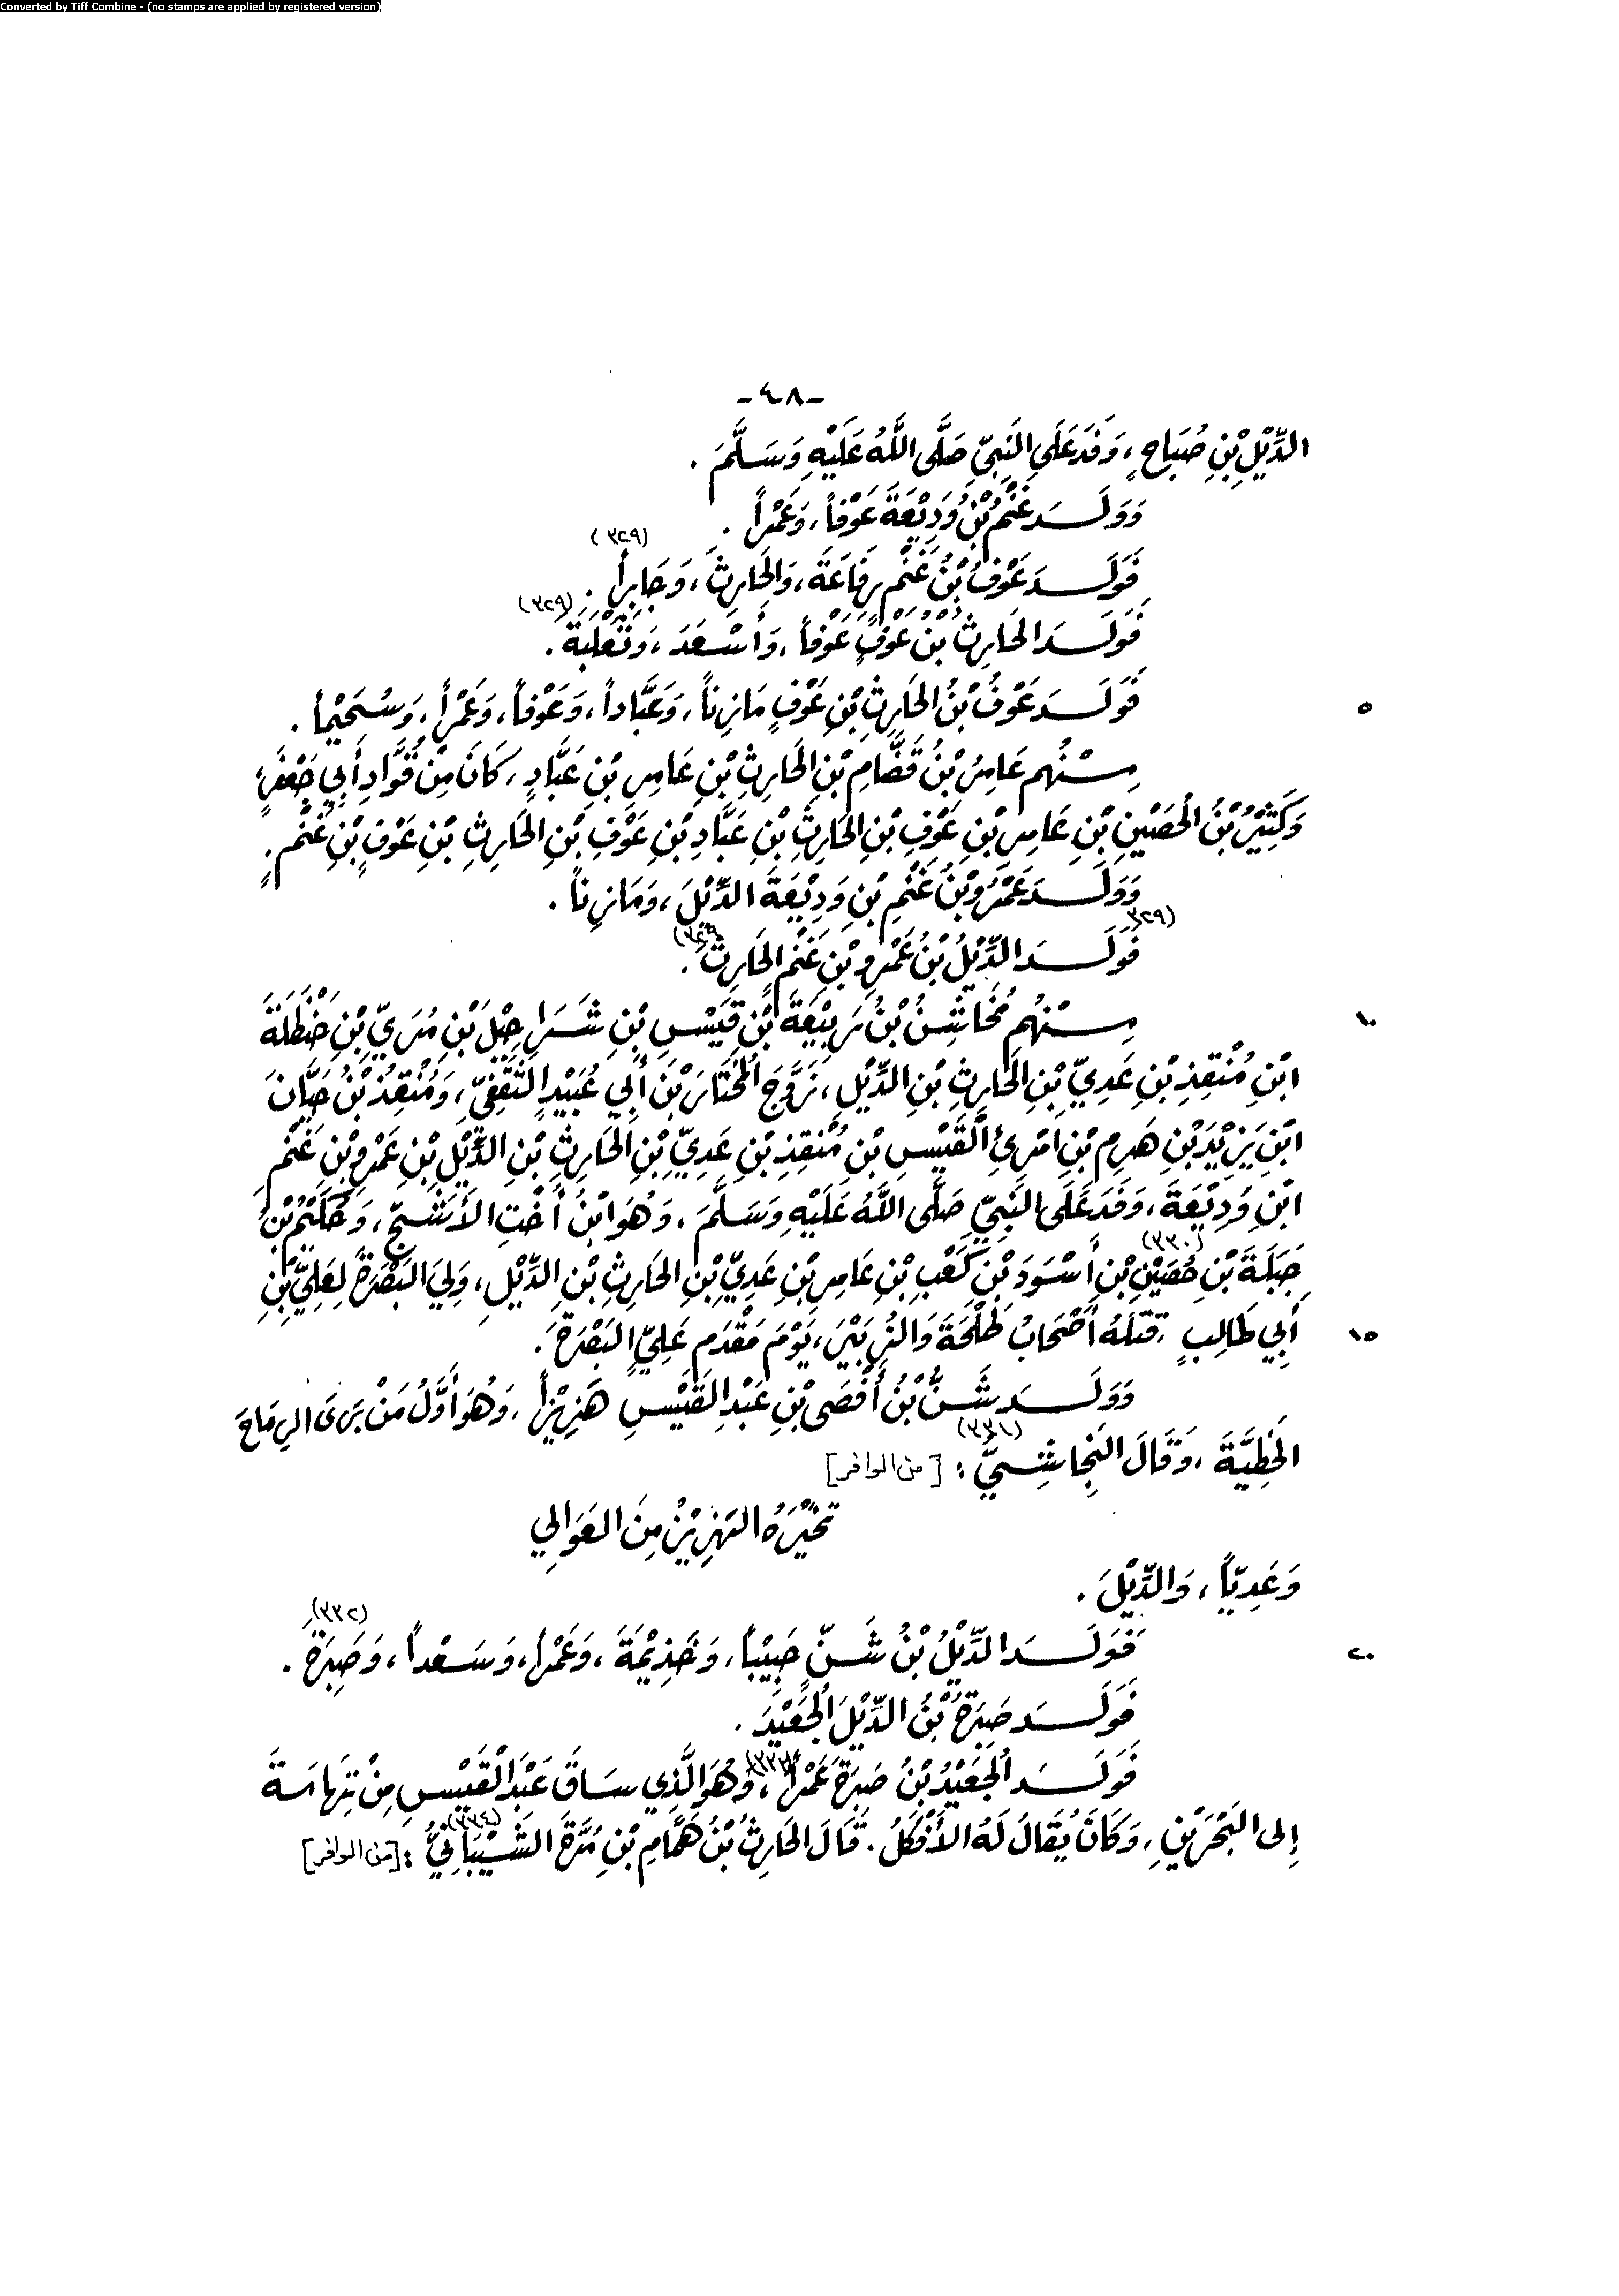 Converted by Tiff Combine - (no stamps are applied by registered version)
-٤٨-
الدِّيْلِ بْنِ صُبَاحٍ، وَفَدَ عَلَى النَبِيِّ صَلَّى اللَّهُ عَلَيْهِ وَسَلَّمَ .
وَوَلَـدَ غَنْمُ بْنُ وَدِيْعَةَ عَوْفاً، وَعَمْراً .
(٣٢٩)
فَوَلَـدَ عَوْفُ بْنُ غَنْمٍ رِفَاعَةَ، وَالحَارِثَ، وَجَابِراً .
(٣٢٩)
فَوَلَـدَ الحَارِثُ بْنُ عَوْفٍ عَوْفاً، وَأَسْعَدَ، وَثَعْلَبَةَ .
فَوَلَـدَ عَوْفُ بْنُ الحَارِثِ بْنِ عَوْفٍ مَازِناً، وَعَبَّاداً، وَعَوْفاً، وَعَمْراً، وَسُحَيْماً . ٥
مِـنْهُم عَامِرُ بْنُ قَضَّامِ بْنِ الحَارِثِ بْنِ عَامِرِ بْنِ عَبَّادٍ، كَانَ مِنْ قُوَّادِ أَبِي جَعْفَرٍ،
وَكَثِيْرُ بْنُ الحُصَيْنِ بْنِ عَامِرِ بْنِ عَوْفِ بْنِ الحَارِثِ بْنِ عَبَّادِ بْنِ عَوْفِ بْنِ الحَارِثِ بْنِ عَوْفِ بْنِ غَنْمٍ .
وَوَلَـدَ عَمْرُو بْنُ غَنْمِ بْنِ وَدِيْعَةَ الدِّيْلَ، وَمَازِناً .
(٣٢٩) (٣٢٩)
فَوَلَـدَ الدِّيْلُ بْنُ عَمْرِو بْنِ غَنْمٍ الحَارِثَ .
مِـنْهُم مُخَاشِنُ بْنُ رَبِيْعَةَ بْنِ قَيْسِ بْنِ شَرَاحِيْلَ بْنِ مُرَيِّ بْنِ حَنْظَلَةَ ١٠
ابْنِ مُنْقِذِ بْنِ عَدِيِّ بْنِ الحَارِثِ بْنِ الدِّيْلِ، زَوَّجَ المُخْتَارَ بْنَ أَبِي عُبَيْدٍ الثَّقَفِيَّ، وَمُنْقِذُ بْنُ حَيَّانَ
ابْنِ يَزِيْدَ بْنِ هَرِمِ بْنِ امْرِئِ القَيْسِ بْنِ مُنْقِذِ بْنِ عَدِيِّ بْنِ الحَارِثِ بْنِ الدِّيْلِ بْنِ عَمْرِو بْنِ غَنْمِ
ابْنِ وَدِيْعَةَ، وَفَدَ عَلَى النَّبِيِّ صَلَّى اللَّهُ عَلَيْهِ وَسَلَّمَ، وَهُوَ ابْنُ أُخْتِ الأَشَجِّ، وَحُكَيْمُ بْنُ
(٣٣٠)
جَبَلَةَ بْنِ حُصَيْنِ بْنِ أَسْوَدَ بْنِ كَعْبِ بْنِ عَامِرِ بْنِ عَدِيِّ بْنِ الحَارِثِ بْنِ الدِّيْلِ، وَلِيَ البَصْرَةَ لِعَلِيِّ بْنِ
أَبِي طَالِبٍ، قَتَلَهُ أَصْحَابُ طَلْحَةَ وَالزُبَيْرِ، يَوْمَ مَقْدَمِ عَلِيٍّ البَصْرَةَ . ١٥
وَوَلَـدَ شَنُّ بْنُ أَفْصَى بْنِ عَبْدِ القَيْسِ هَزِيْزاً، وَهُوَ أَوَّلُ مَنْ بَرَى الرِمَاحَ
(٣٣١)
الخَطِّيَّةَ، وَقَالَ النَجَاشِيُّ : [من الوافر]
تَخَيَّرَهُ الهَزِيْزُ مِنَ العَوَالِي
وَعَدِيّاً، وَالدِّيْلَ .
(٣٣٢)
فَوَلَـدَ الدِّيْلُ بْنُ شَنٍّ حَبِيْباً، وَجَذِيْمَةَ، وَعَمْراً، وَسَعْداً، وَصَبِرَةَ . ٢٠
فَوَلَـدَ صَبِرَةُ بْنُ الدِّيْلِ الجُعَيْدَ .
فَوَلَـدَ الجُعَيْدُ بْنُ صَبِرَةَ عَمْراً (٣٣٣)، وَهُوَ الَّذِي سَاقَ عَبْدَ القَيْسِ مِنْ تِهَامَةَ
إِلى البَحْرَيْنِ، وَكَانَ يُقَالُ لَهُ الأَفْكَلُ . قَالَ الحَارِثُ بْنُ هَمَّامِ بْنِ مُرَّةَ الشَّيْبَانِيُّ (٣٣٤) : [من الوافر]